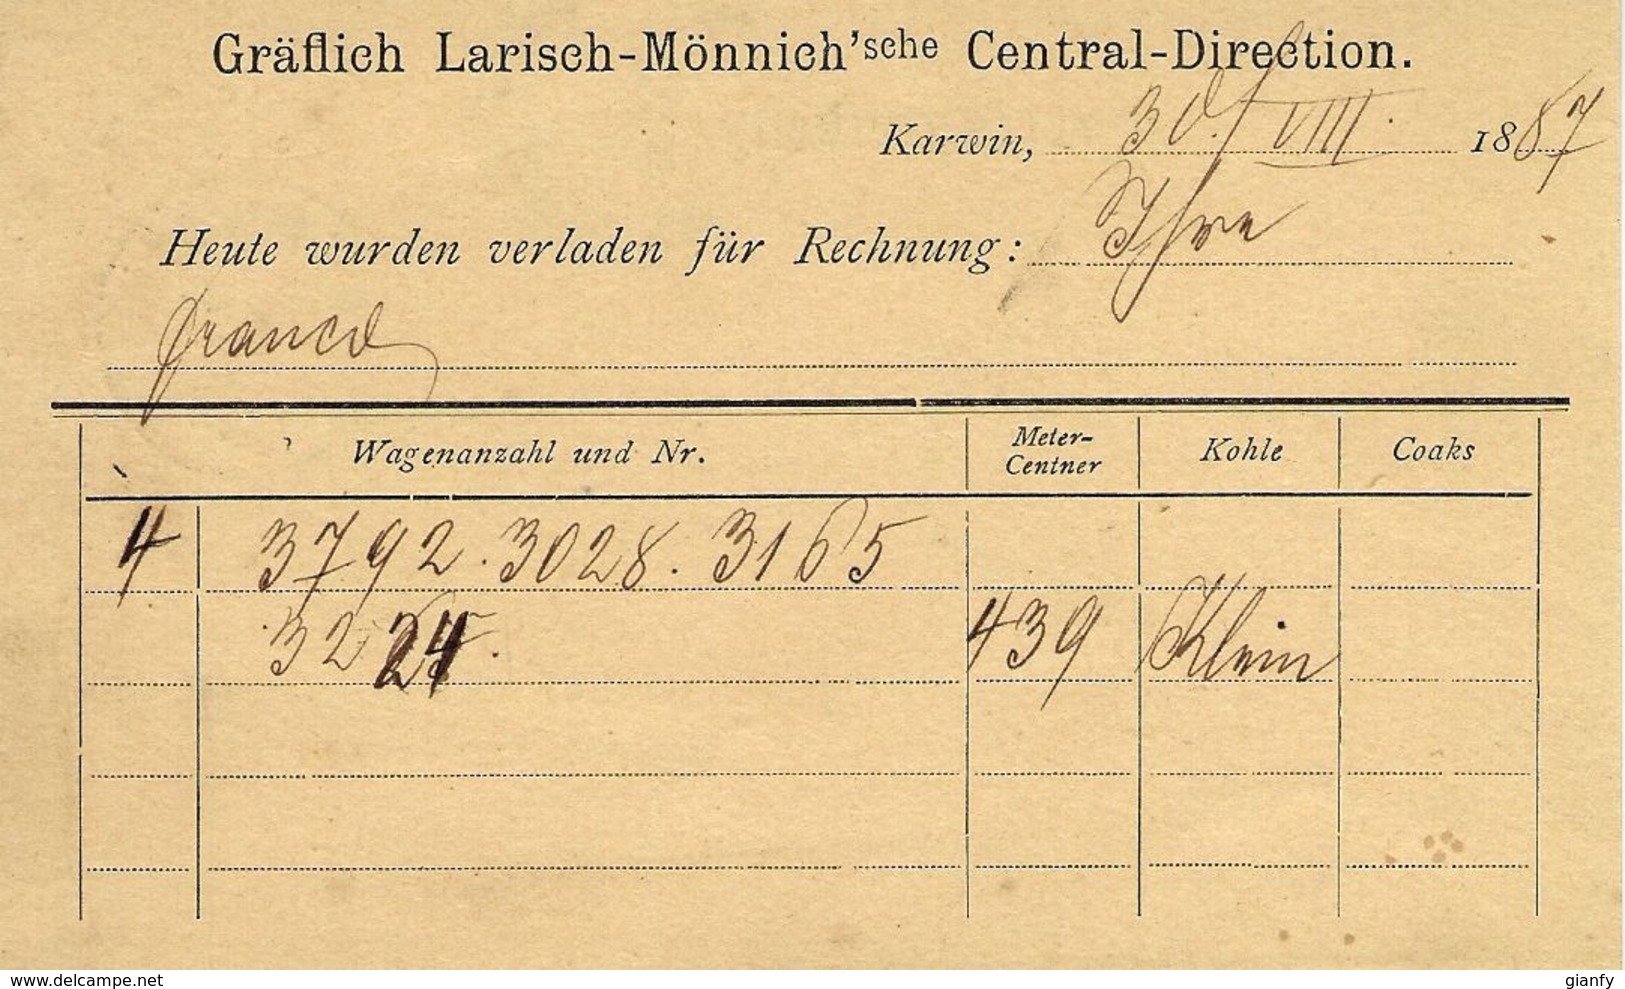 Gräflich Larisch-Mönnich'sche Central-Direction.
Karwin, 30/VIII. 1887
Heute wurden verladen für Rechnung: Ihre
franco
Wagenanzahl und Nr. Meter-Centner Kohle Coaks
4 3792. 3028. 3165
3224. 439 Klein
www.delcampe.net
gianfy